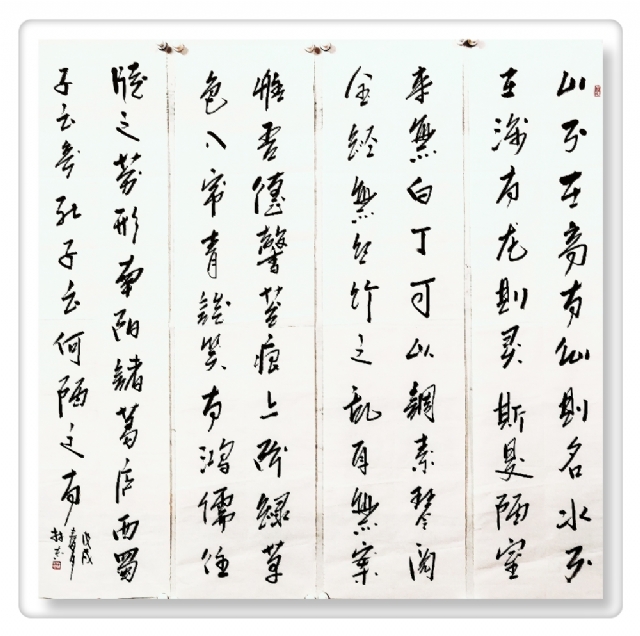 山不在高有仙则名水不
在深有龙则灵斯是陋室
来無白丁可以調素琴阅
金經無丝竹之乱耳無案
惟吾德馨苔痕上階緑草
色入帘青談笑有鴻儒往
牘之劳形南陽諸葛庐西蜀
子云亭孔子云何陋之有
戊戌